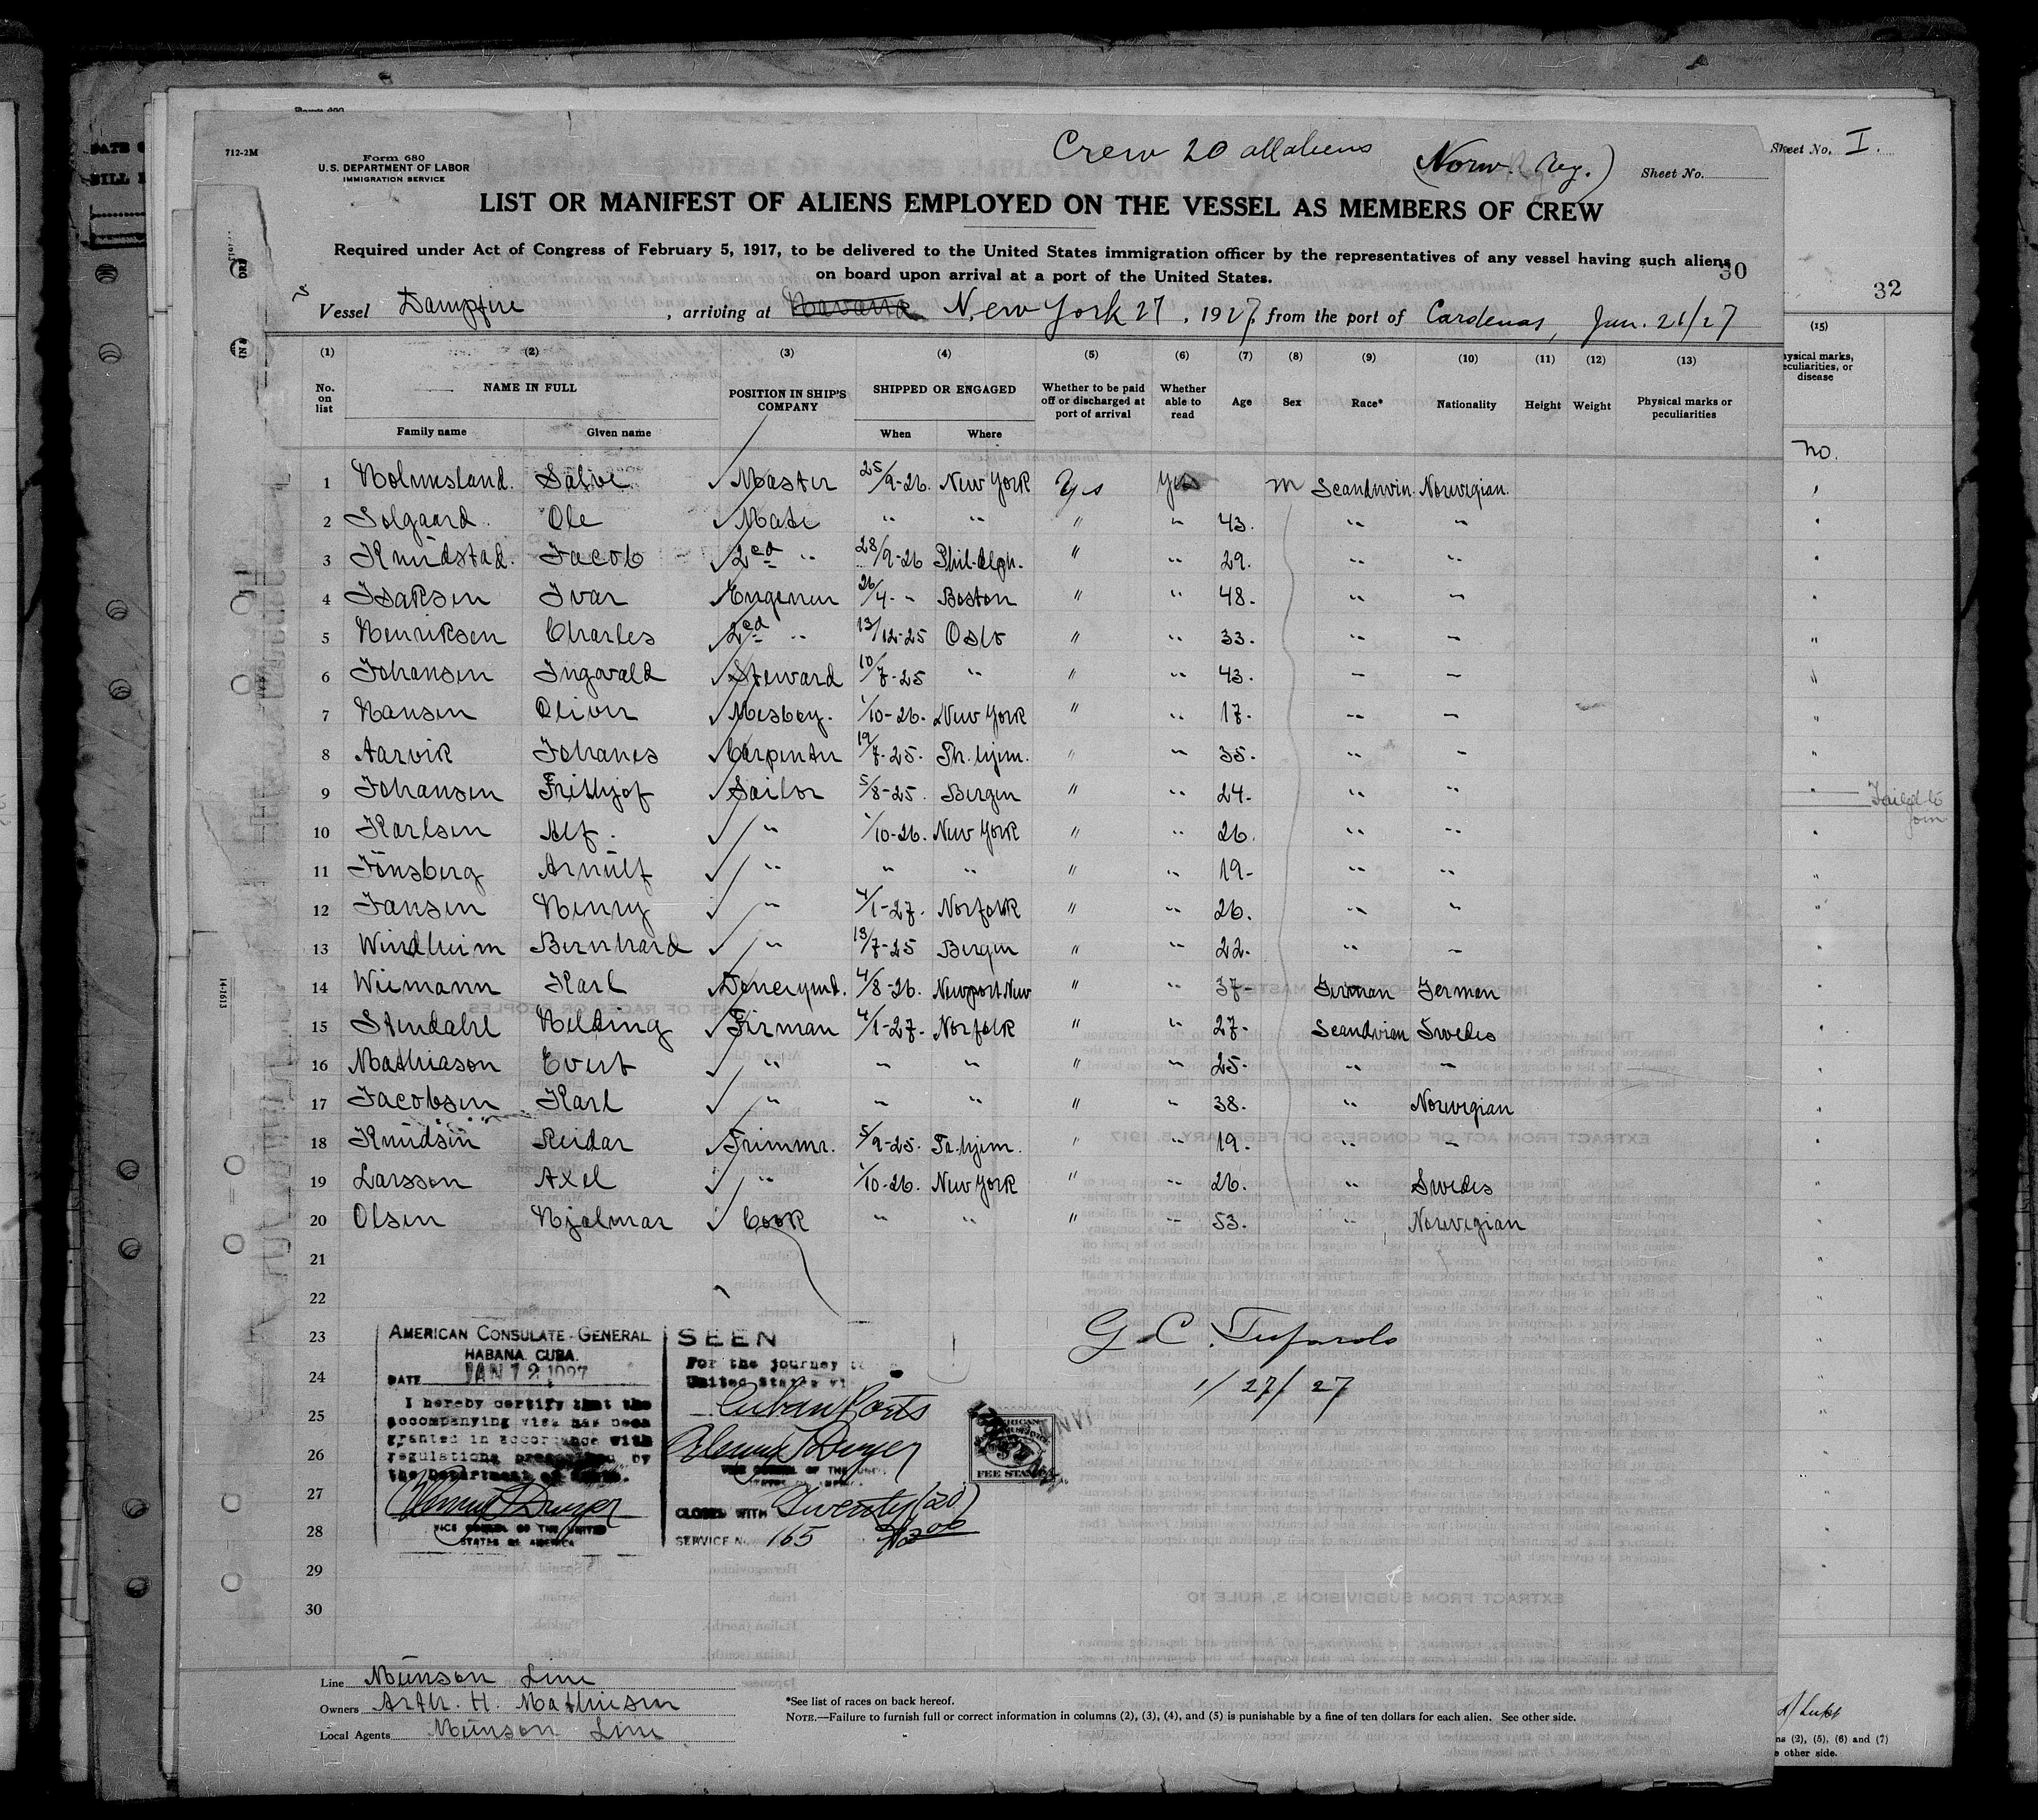 Crew 20 all aliens (Norw. Reg.)
Sheet No. I.
712-2M
Form 680
U.S. DEPARTMENT OF LABOR
IMMIGRATION SERVICE
Sheet No.
LIST OR MANIFEST OF ALIENS EMPLOYED ON THE VESSEL AS MEMBERS OF CREW
Required under Act of Congress of February 5, 1917, to be delivered to the United States immigration officer by the representatives of any vessel having such aliens
on board upon arrival at a port of the United States.
30
32
S Vessel Dampfine, arriving at Havana New York 27, 1927, from the port of Cardenas, Jan. 21/27
(1) (2) (3) (4) (5) (6) (7) (8) (9) (10) (11) (12) (13) (15)
No. on list NAME IN FULL POSITION IN SHIP'S COMPANY SHIPPED OR ENGAGED Whether to be paid off or discharged at port of arrival Whether able to read Age Sex Race* Nationality Height Weight Physical marks or peculiarities
Family name Given name When Where
ysical marks, eculiarities, or disease
no.
1 Holmesland. Salve ✓ Master 25/9-26. New York Yes Yes m Scandinvin. Norwegian.
2 Solgaard. Ole ✓ Mate " " " " 43. " "
3 Knüdstad. Jacob ✓ 2ed " 28/9-26 Phil.delph. " " 29. " "
4 Isaksen Ivar ✓ Engenier 26/4- " Boston " " 48. " "
5 Henriksen Charles ✓ 2ed " 13/12-25 Oslo " " 33. " "
6 Johansen Ingvald ✓ Steward 10/7-25 " " " 43. " "
7 Hansen Oliver ✓ Mesboy. 1/10-26. New York " " 17. " "
8 Aarvik Johanes ✓ Carpenter 19/7-25. Th.hjem. " " 35. " "
9 Johansen Frithjof ✓ Sailor 5/8-25. Bergen " " 24. " "
Failed to join
10 Karlsen Alf. ✓ " 1/10-26. New York " " 26. " "
11 Tönsberg Arnülf ✓ " " " " " 19- " "
12 Jansen Henry ✓ " 4/1-27. Norfolk " " 26. " "
13 Windheim Bernhard ✓ " 13/7-25 Bergen " " 22. " "
14 Wiemann Karl ✓ 4/8-26. Newport New " " 37- German German
15 Stendahl Hilding ✓ Firman 4/1-27. Norfolk " " 27. Scandvian Swedes
16 Mathiason Evert ✓ " " " " " 25. " "
17 Jacobsen Karl ✓ " " " " " 38. " Norwegian
18 Knüdsin Reidar ✓ Trimmr. 5/9-25. Tr.hjem. " " 19. " "
19 Larsson Axel ✓ " 1/10-26. New York " " 26. " Swedes
20 Olsen Hjalmar ✓ Cook " " " " 53. " Norwegian
21
22
23
24
25
26
27
28
29
30
AMERICAN CONSULATE-GENERAL
HABANA. CUBA.
DATE JAN 12 1927
I hereby certify that the
accompanying visa has been
granted in accordance with
regulations prescribed by
the Department of State.
VICE CONSUL OF THE UNITED
STATES OF AMERICA
SEEN
For the journey to
United States vi
Cuban Ports
VICE CONSUL OF THE UNI
CLOSED WITH Twenty (20)
SERVICE N. 165
FEE STAMP
G. C.
1/27/27
Line Münson Line
Owners Arth. H. Mathiesen
Local Agents Münson Line
*See list of races on back hereof.
NOTE.—Failure to furnish full or correct information in columns (2), (3), (4), and (5) is punishable by a fine of ten dollars for each alien. See other side.
ns (2), (5), (6) and (7)
e other side.
14-1613